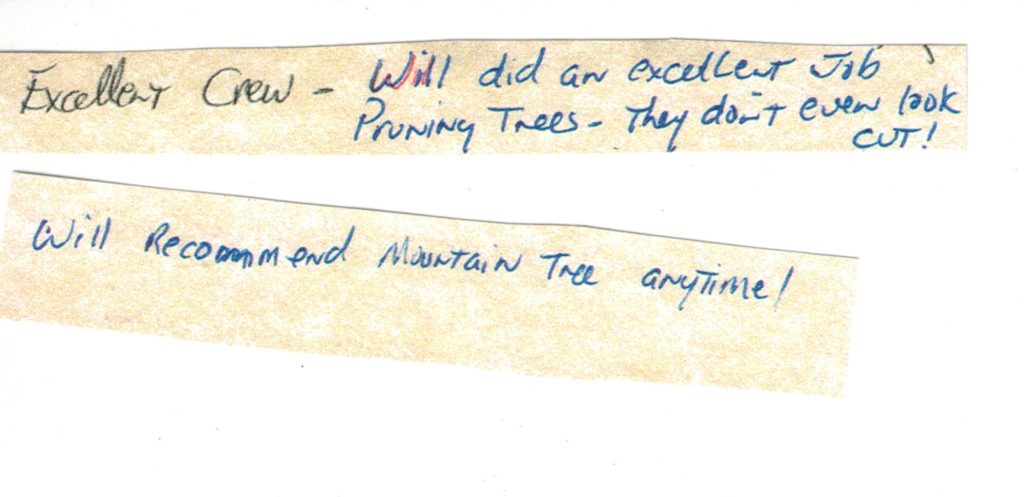 Excellent Crew - Will did an excellent Job
Pruning Trees - They don't even look
CUT!
Will Recommend Mountain Tree anytime!